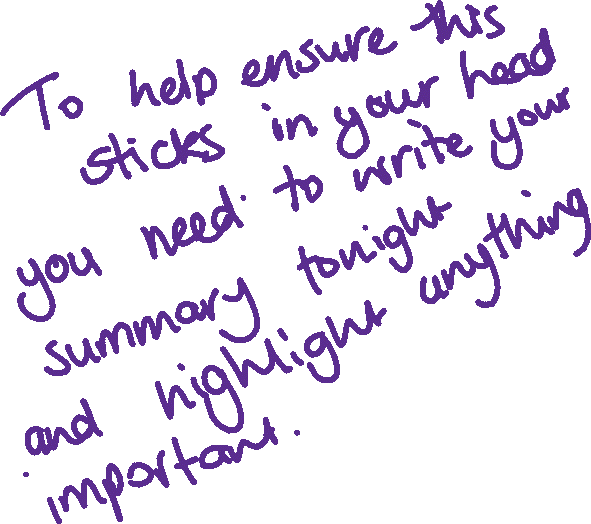 To help ensure this
sticks in your head
you need to write your
summary tonight
and highlight anything
important.